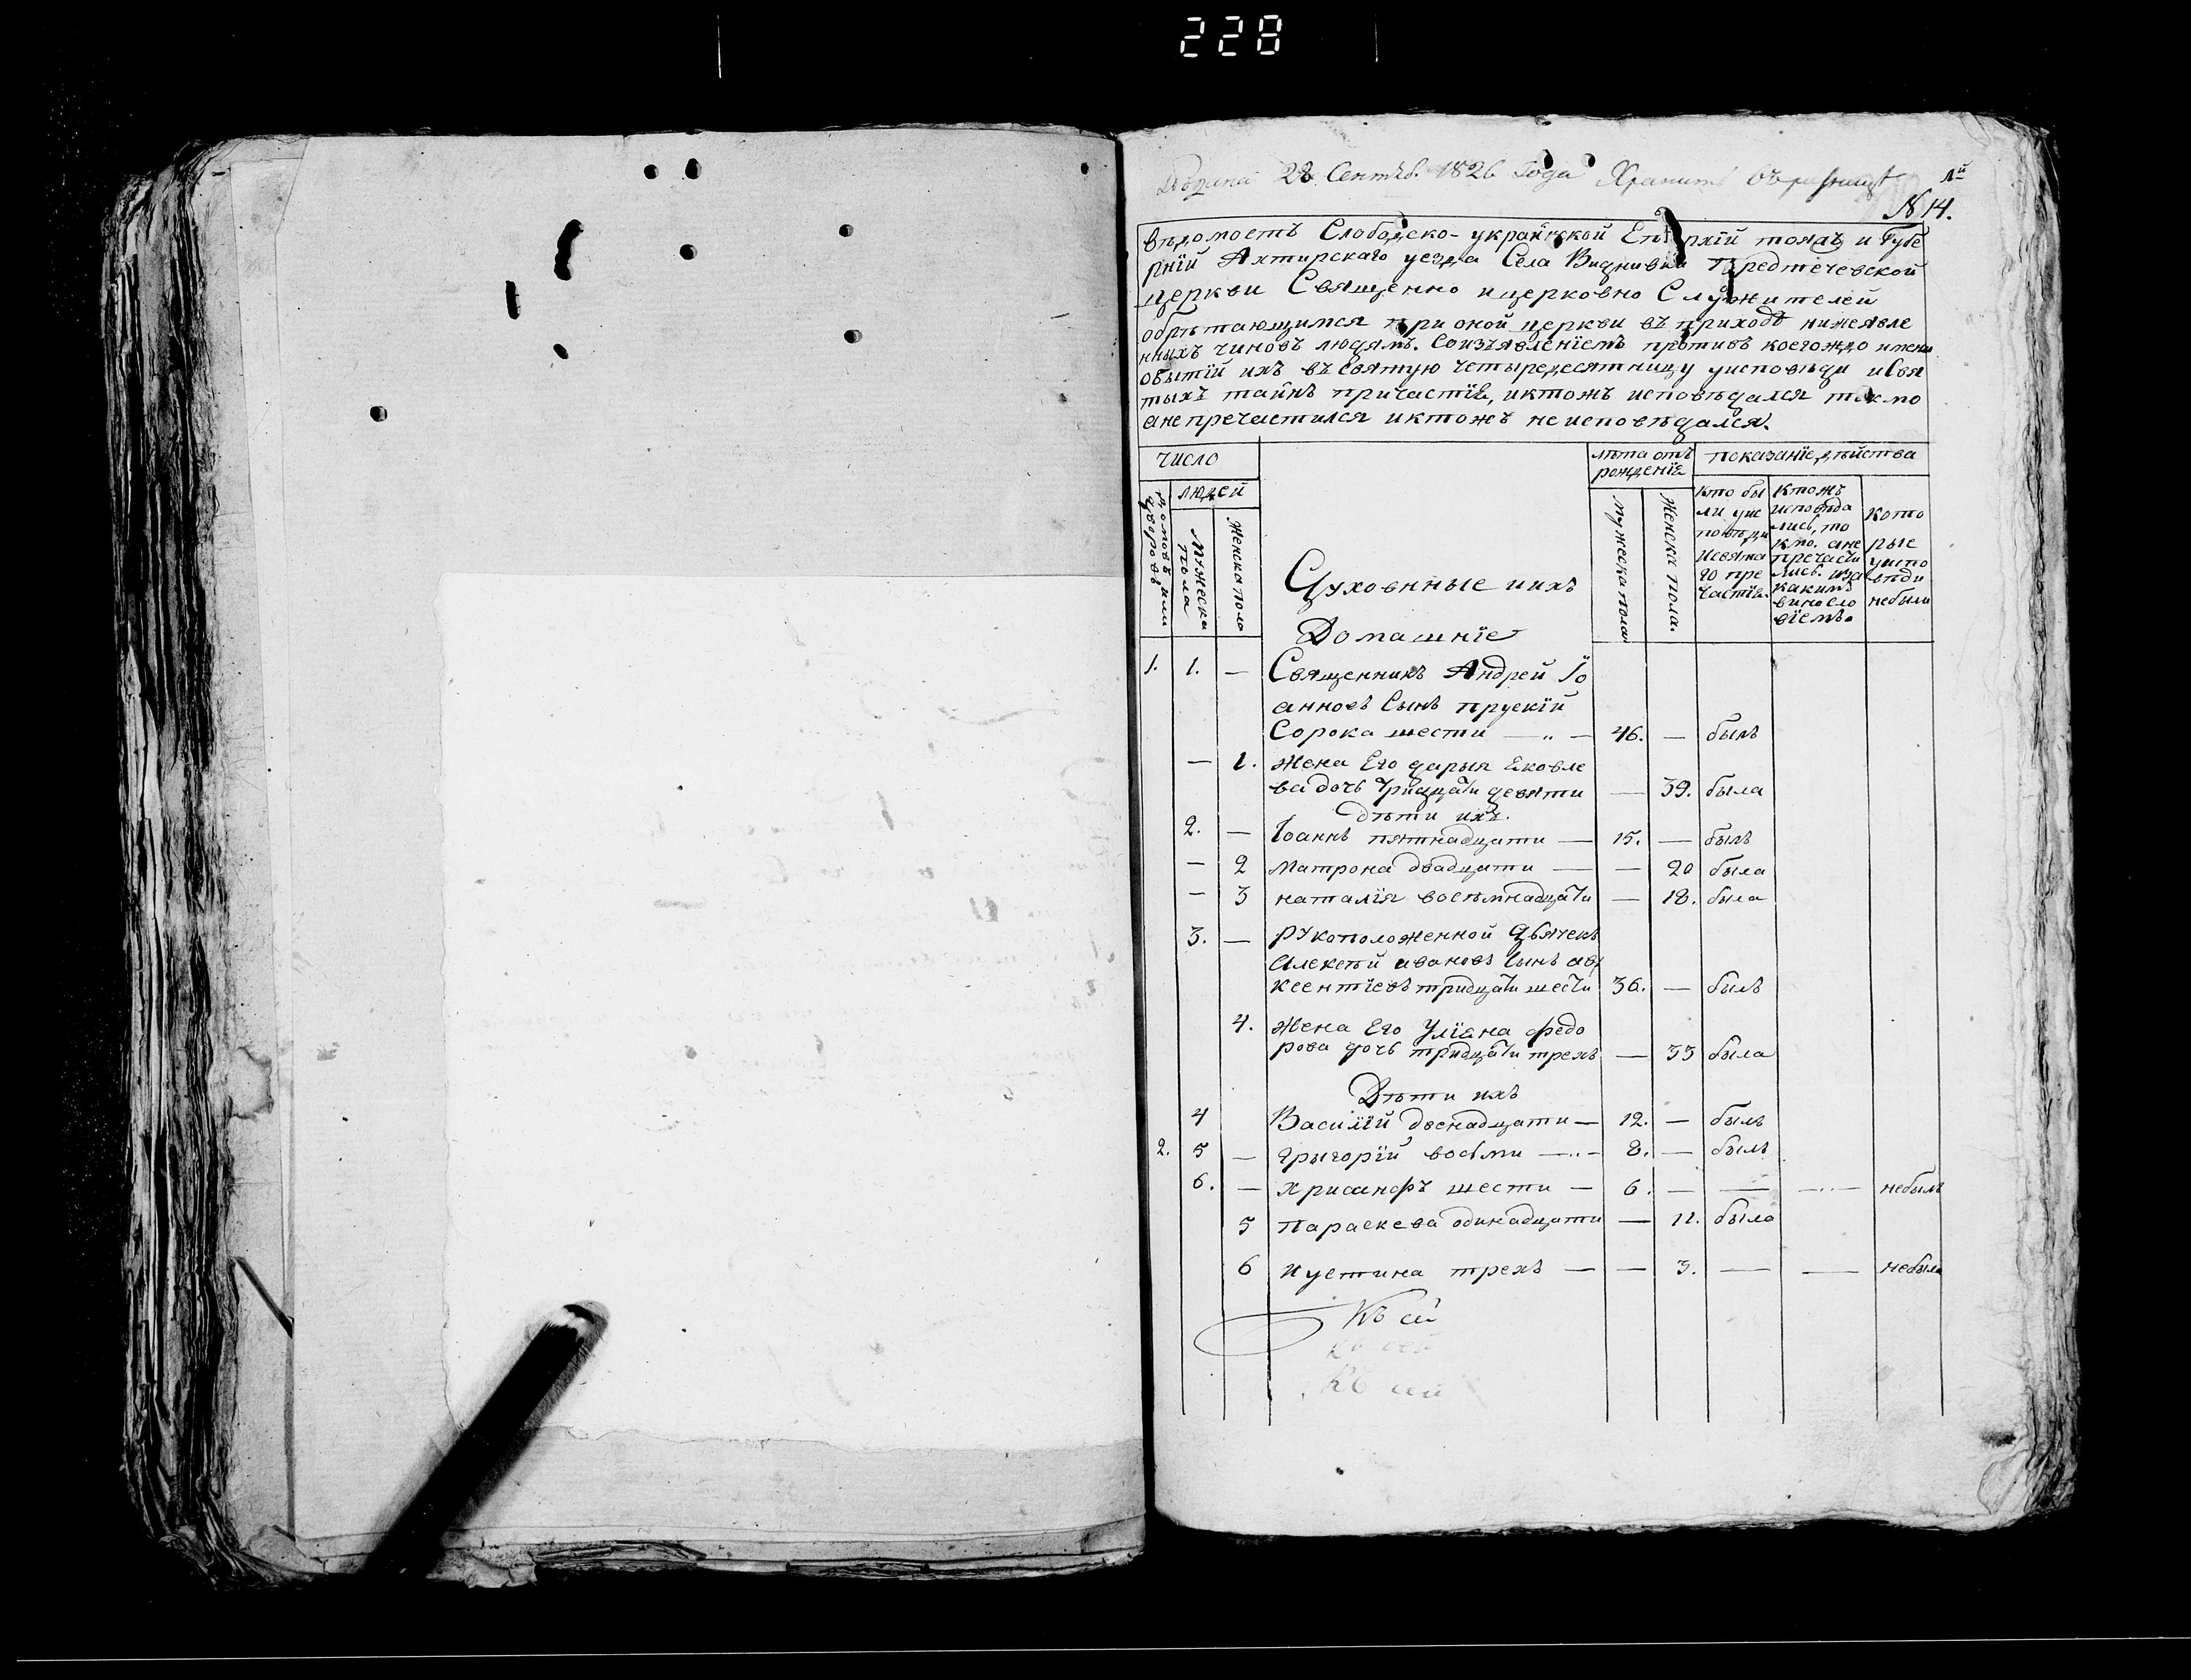 228
28 Сентяб. 1826 Года Хранить въ
№ 14.
вѣдомость Слободско-украинской Епархїй тояжъ и Губе
рнїй Ахтирскаго уезда Села Видживки Предтечевской
церкви Священно ицерковно Служителей
обрѣтающимся при оной церкви въ приходѣ нижеявле
нныхъ чиновъ людямъ. Соизъявленїемъ противъ коегождо имени
обытїй ихъ въ Святую Четыредесятницу уисповѣди иСвя
тыхъ тайнъ причастїя, иктожъ исповѣдался токмо
анепречастился иктожъ неисповѣдался.
число
лѣта отъ рожденїя
показанїе дѣйства
людей
домовъ или дворовъ
Мужеска пола
Женска пола
Духовнные иихъ
Домашнїе
мужеска пола
женска пола.
Кто бы
ли уис
повѣди
исвята
го пре
частїя.
Ктожъ
исповѣда
лись, то
кмо. ане
пречасти
лись. иза
какимъ
винесло
вїемъ.
Кото
рые
уиспо
вѣди
небыли
1. 1. — Священникъ Андрей Їо
анновъ Сынъ прускїй
Сорока шести — „ — 46. — былъ
— 1. Жена Его дарья Яковле
ва дочь Тридцати девяти — 39. была
дѣти ихъ.
2. — Їоаннъ пятнадцати — 15. — былъ
— 2 Матрона двадцати — — 20 была
— 3 наталїя восемнадцати — 18. была
3. — Рукоположенной Дьячекъ
Алексѣй ивановъ Сынъ ав
ксентїевъ тридцати шести 36. — былъ
4. Жена Его Улїяна федо
рова дочь тридцати трехъ — 33 была
Дѣти ихъ
4 Василїй двенадцати — 12. — былъ
2. 5 — Григорїй восьми — „ — 8. — былъ
6. — Хрисанфъ шести — 6. — — — небылъ
5 Параскева одинадцати — 11. была
6 Иустина трехъ — — 3. — — небыла
Къ сей
Къ сей